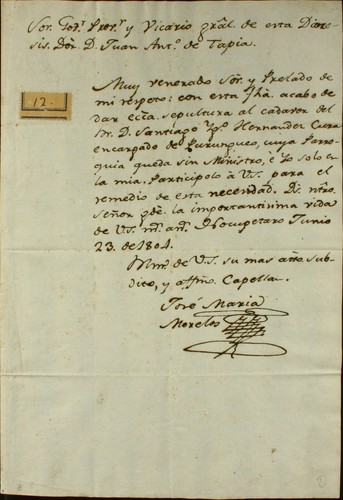 Sor. Gor. Pror. y Vicario gral. de esta Dioce-
sis. Dor. D. Juan Anto. de Tapia.
12.
Muy venerado Sor. y Prelado de
mi respeto: con esta fha. acabo de
dar ecca. sepultura al cadaver del
Br. D. Santiago Hernandez Cura
encargado de Purungueo, cuya Parro-
quia queda sin Ministro, é yo solo en
la mia. Participolo á V.S. para el
remedio de esta necesidad. Ds. ntro.
Señor gde. la importantisima vida
de V.S. ms. as. Nocupetaro Junio
23. de 1804.
B.l.m. de V.S. su mas atto. sub-
dito, y affmo. Capellan.
José Maria
Morelos